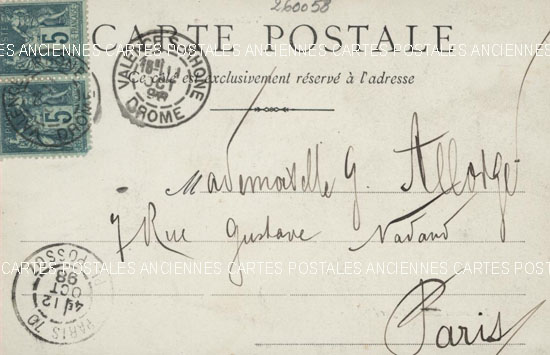 260058
CARTE POSTALE
Ce côté est exclusivement réservé à l'adresse
5
5
VALENCE-S-RHONE
11
OCT
98
DROME
DROME
ANCIENNES CARTES POSTALES ANCIENNES CARTES POSTALES ANCIENNES
Mademoiselle G. Allorge
7 Rue Gustave Nadaud
Paris
CARTES POSTALES ANCIENNES CARTES POSTALES ANCIENNES CARTES POSTALES
PARIS 70
4E 12
OCT
98